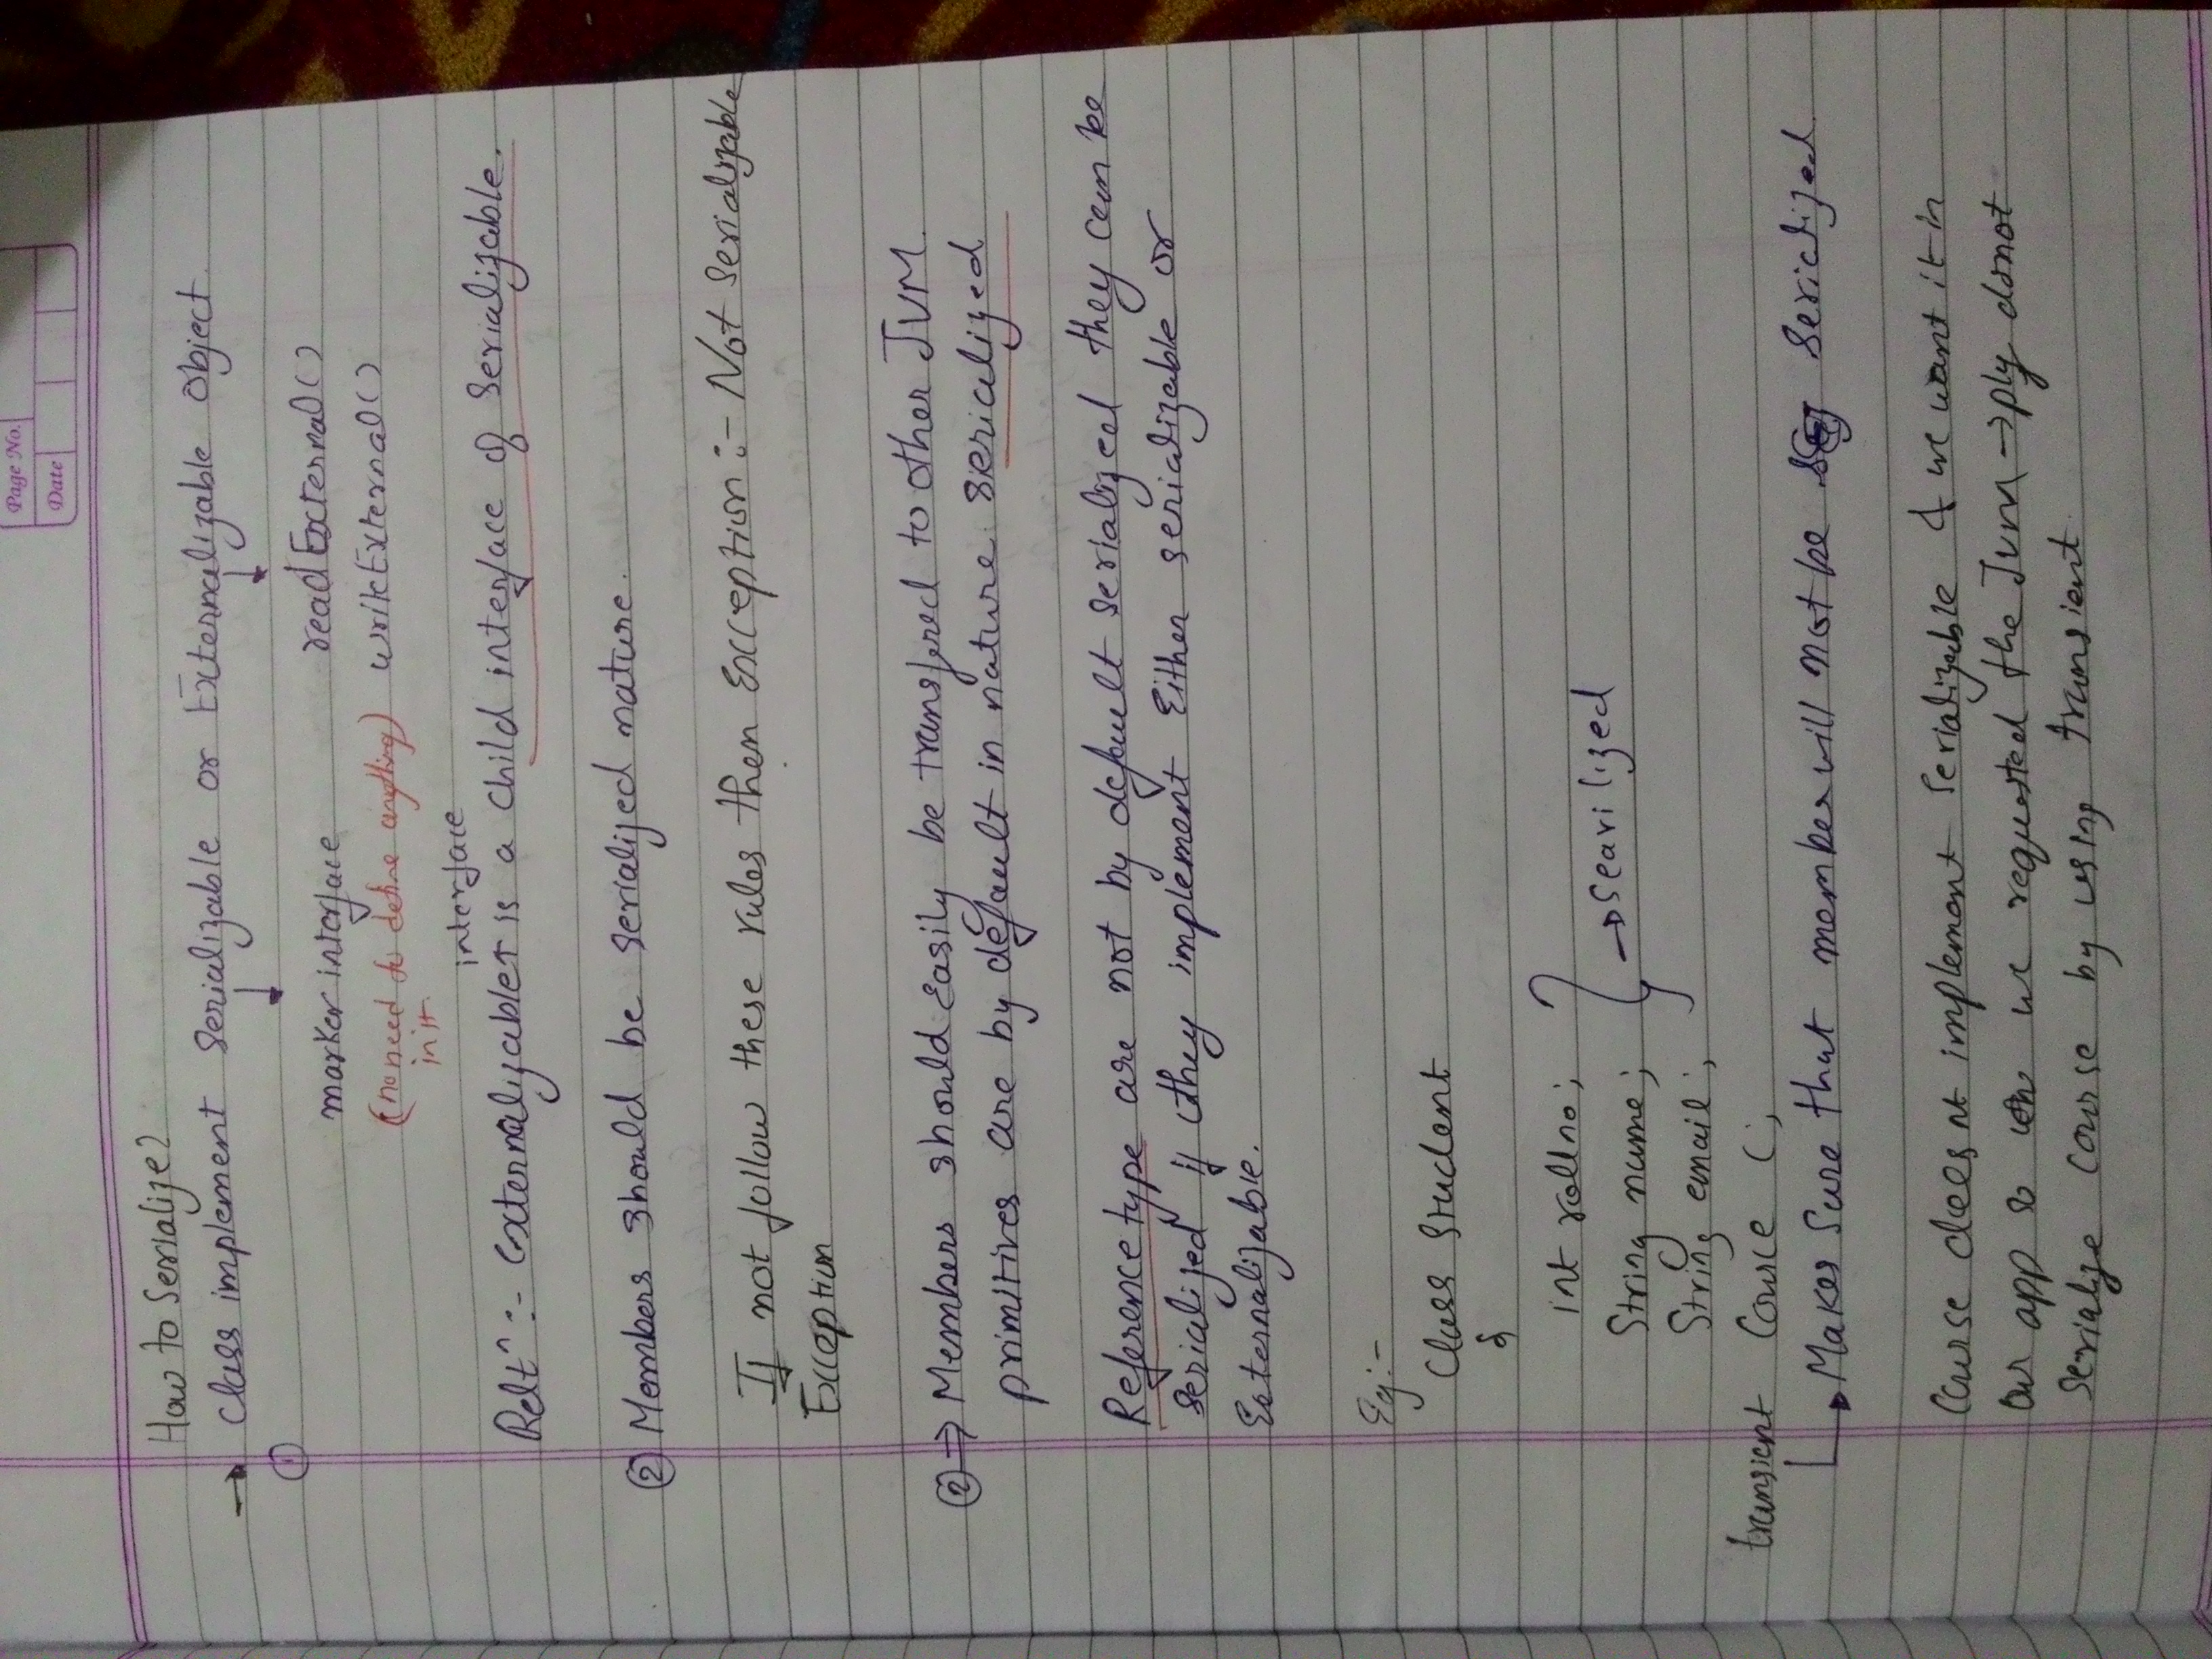 Page No.
Date
How to Serialize?
→ Class implement Serializable or Externalizable Object.
①
marker interface readExternal()
(no need to define anything) writeExternal()
in it.
interface
Reltⁿ :- Externalizable is a child interface of Serializable.
② Members should be serialized nature.
If not follow these rules then Exception :- Not Serializable
Exception
② → Members should easily be transfered to other JVM.
primitives are by default in nature serialized
Reference type are not by default serialized they can be
serialized if they implement Either serializable or
Externalizable.
Eg:-
Class Student
{
int rollno;
String name; → searilized
String email;
transient Cource C;
↳ Makes Sure that member will not be serialized.
Course does nt implement Serializable & we want it in
our app so we requested the JVM → ply donot
serialize course by using transient.